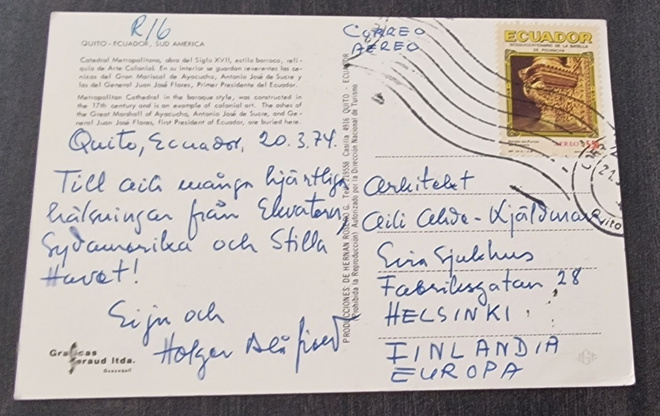 R/6
QUITO - ECUADOR, SUD AMERICA
Catedral Metropolitana, obra del Siglo XVII, estilo barroco, reli-
quia de Arte Colonial. En su interior se guardan reverentes las ce-
nizas del Gran Mariscal de Ayacucho, Antonio José de Sucre y
las del General Juan José Flores, Primer Presidente del Ecuador.
Metropolitan Cathedral in the baroque style, was constructed in
the 17th century and is an example of colonial art. The ashes of
the Great Marshall of Ayacucho, Antonio José de Sucre, and Ge-
neral Juan José Flores, first President of Ecuador, are buried here.
Quito, Ecuador, 20.3.74.
Till Aili många hjärtliga
hälsningar från Ekvatorn,
Sydamerika och Stilla
Havet!
Eiju och
Holger
Graficas
Feraud ltda.
Guayaquil
PRODUCCIONES DE HERNAN ROSERO G. Casilla 4916 QUITO - ECUADOR
(Prohibida la Reproducción) Autorizado por la Dirección Nacional de Turismo
CORREO
AEREO
ECUADOR
SESQUICENTENARIO DE LA BATALLA
DE PICHINCHA
AEREO
Arkitekt
Aili
Eira Sjukhus
Fabriksgatan 28
HELSINKI
FINLANDIA
EUROPA